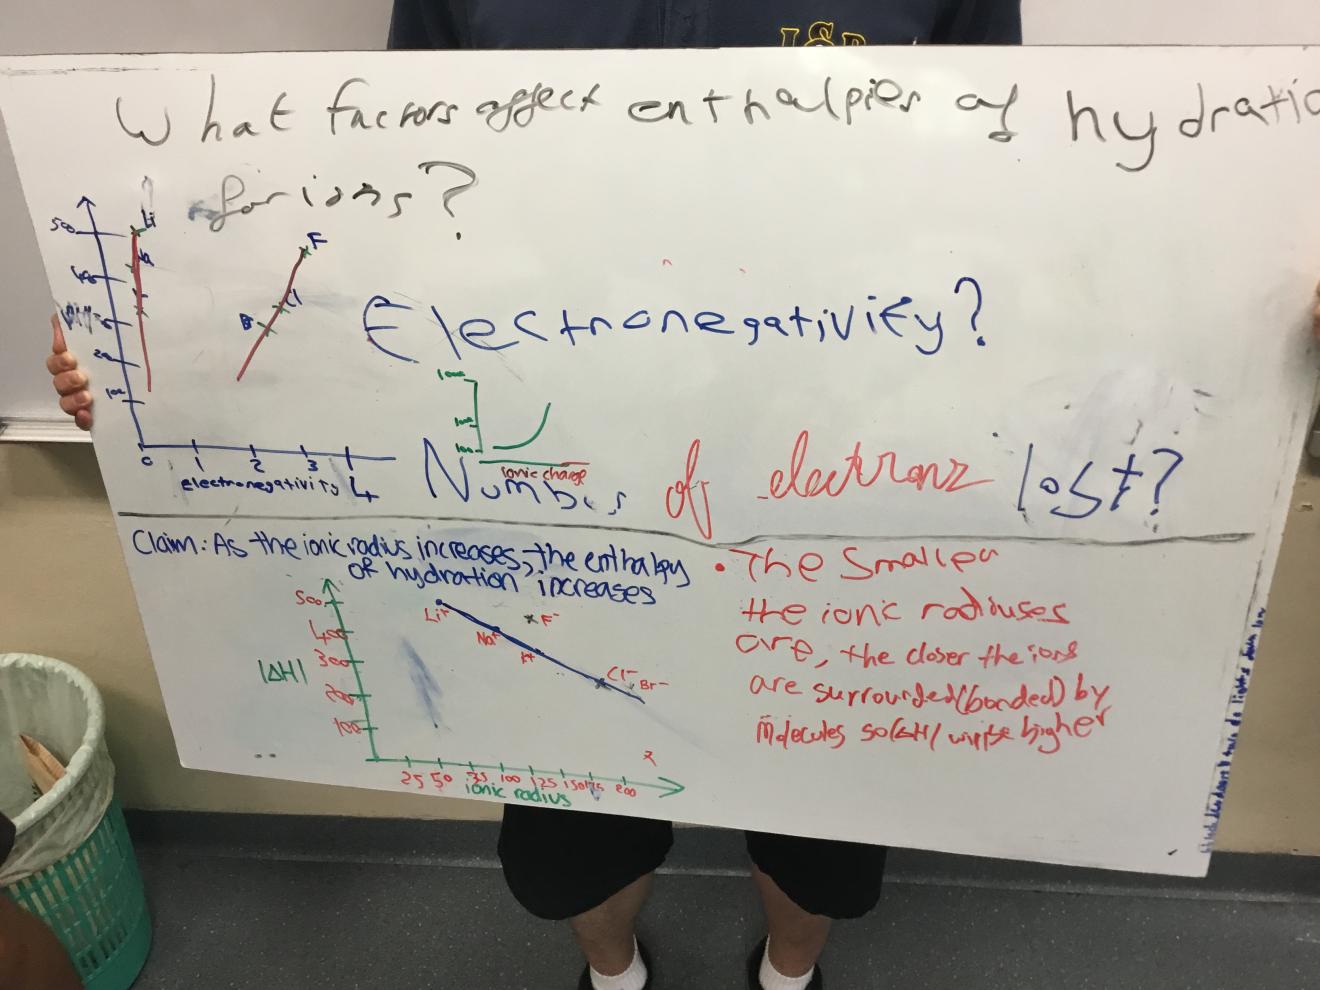 ISB
What factors affect enthalpies of hydratio
for ions?
500
Li
Na
F
Cl
100
0 1 2 3 4
electronegativity
Electronegativity?
ionic charge
Number of electrons lost?
Claim: As the ionic radius increases, the enthalpy
of hydration increases
500
400
300
200
100
|ΔH|
Li+
Na+
K+
F-
Cl-
Br-
25 50 75 100 125 150 175 200
ionic radius
• The smaller
the ionic radiuses
are, the closer the ions
are surrounded (bonded) by
molecules so |ΔH| will be higher